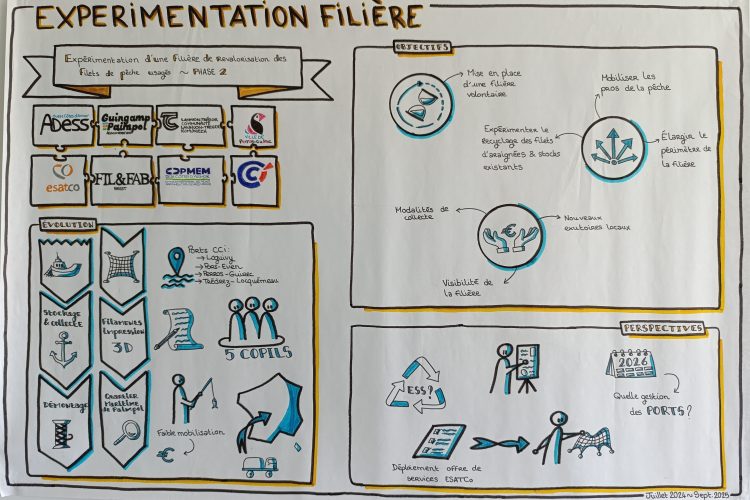 EXPERIMENTATION FILIÈRE
Expérimentation d'une filière de revalorisation des
filets de pêche usagés ~ PHASE 2
ADESS
Guingamp
Paimpol
LANNION-TRÉGOR
COMMUNAUTÉ
LANNUON-TREGER
KUMUNIEZH
VILLE DE
esatco
FIL&FAB
BREST
CDPMEM
CCI
ÉVOLUTION
Stockage
& collecte
Démontage
Filaments
Impression
3D
Quartier
Maritime
de Paimpol
Ports CCI:
→ Loguivy
→ Pors-Even
→ Perros-Guirec
→ Trédrez-Locquémeau
5 COPILS
Faible mobilisation
€
OBJECTIFS
Mise en place
d'une filière
volontaire
Mobiliser les
pros de la pêche
Expérimenter le
recyclage des filets
d'araignées & stocks
existants
Élargir le
périmètre de
la filière
Modalités de
collecte
€
Nouveaux
exutoires locaux
Visibilité de
la filière
PERSPECTIVES
ESS?
2026
Quelle gestion
des PORTS?
Déploiement offre de
services ESATCo
Juillet 2024 ~ Sept. 2025